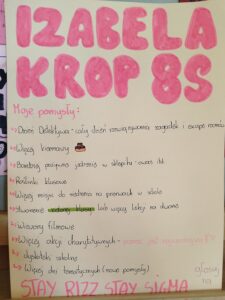 IZABELA
KROP 8S
Moje pomysły:
Dzień Detektywa - cały dzień rozwiązywania zagadek i escape roomów
Więcej kiermaszy
Bardziej pożywne jedzenie w sklepiku - owoce itd.
Roślinki klasowe
Więcej miejsc do siedzenia na przerwach w szkole
Stworzenie zielonej klasy lub więcej lekcji na dworze
Wieczory filmowe
Więcej akcji charytatywnych - pomoc jest najważniejsza
dyskoteki szkolne
Więcej dni tematycznych (nowe pomysły)
głosuj
na
STAY RIZZ STAY SIGMA